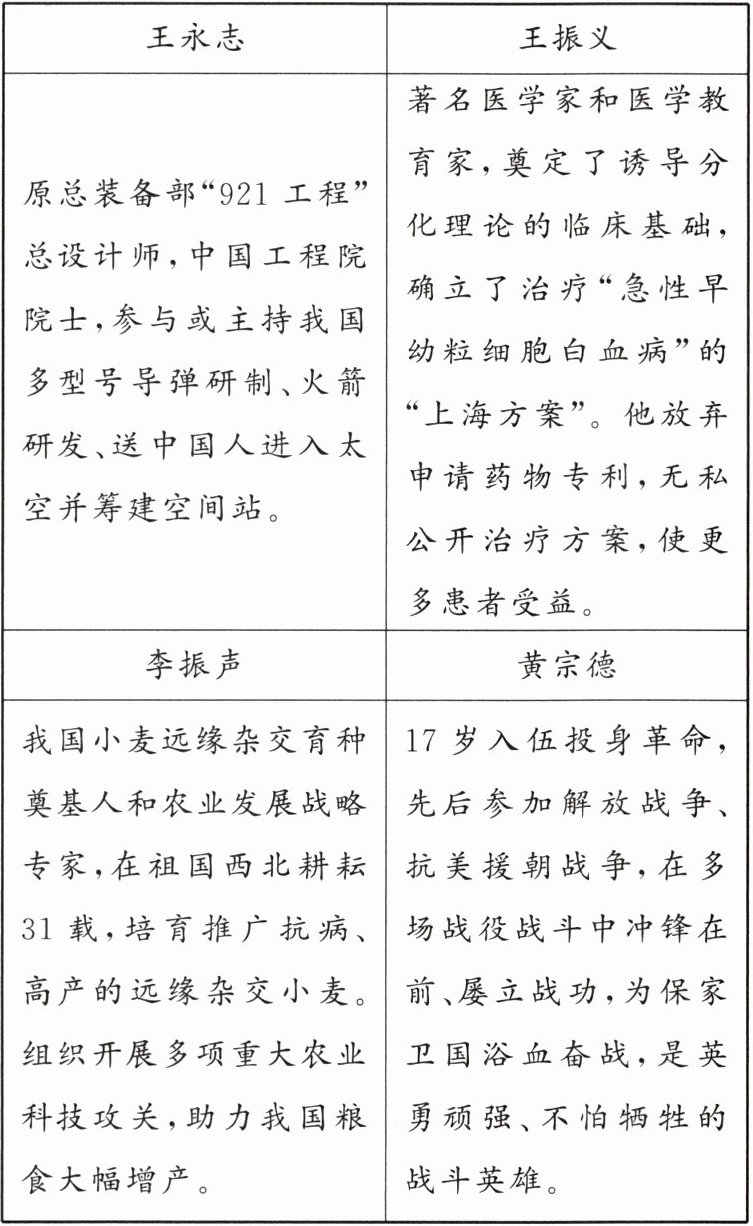 王永志
原总装备部“921 工程”
总设计师,中国工程院
院士,参与或主持我国
多型号导弹研制、火箭
研发、送中国人进入太
空并筹建空间站。
王振义
著名医学家和医学教
育家,奠定了诱导分
化理论的临床基础,
确立了治疗“急性早
幼粒细胞白血病”的
“上海方案”。他放弃
申请药物专利,无私
公开治疗方案,使更
多患者受益。
李振声
我国小麦远缘杂交育种
奠基人和农业发展战略
专家,在祖国西北耕耘
31 载,培育推广抗病、
高产的远缘杂交小麦。
组织开展多项重大农业
科技攻关,助力我国粮
食大幅增产。
黄宗德
17 岁入伍投身革命,
先后参加解放战争、
抗美援朝战争,在多
场战役战斗中冲锋在
前、屡立战功,为保家
卫国浴血奋战,是英
勇顽强、不怕牺牲的
战斗英雄。